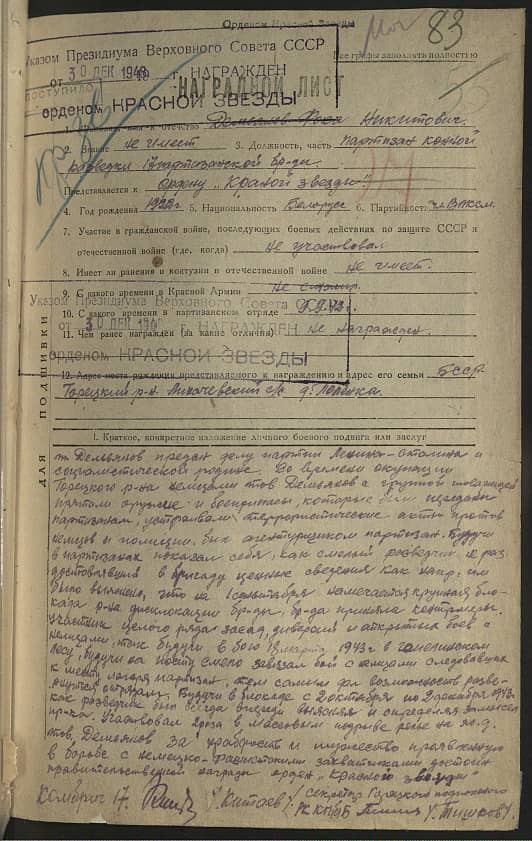 Орденом Красной Звезды
83
Указом Президиума Верховного Совета СССР
Все графы заполнять полностью
от 30 ДЕК 1948 г. НАГРАЖДЕН
ПОСТУПИЛО
НАГРАДНОЙ ЛИСТ
орденом КРАСНОЙ ЗВЕЗДЫ
1. Фамилия, имя и отчество Демьянов Никитович
2. Звание не имеет 3. Должность, часть партизан конной
разведки 17 партизанской бр-ды
Представляется к ордену „Красной звезды"
4. Год рождения 1922 г. 5. Национальность Белорус 6. Партийность чл. ВЛКСМ.
7. Участие в гражданской войне, последующих боевых действиях по защите СССР и
отечественной войне (где, когда) не участвовал
8. Имеет ли ранения и контузии в отечественной войне не имеет.
9. С какого времени в Красной Армии не служил
Указом Президиума Верховного Совета
10. С какого времени в партизанском отряде
от 30 ДЕК 194 г. НАГРАЖДЕН
11. Чем ранее награжден (за какие отличия) не награжден.
орденом КРАСНОЙ ЗВЕЗДЫ
12. Адрес места рождения представляемого к награждению и адрес его семьи БССР
Горецкий р-н д.
ДЛЯ ПОДШИВКИ
I. Краткое, конкретное изложение личного боевого подвига или заслуг
т. Демьянов предан делу партии Ленина-Сталина и
социалистической родине. Во времени оккупации
Горецкого р-на немцами тов Демьянов с группой товарищей
прятали оружие и боеприпасы, которые были переданы
партизанам, устраивали террористические акты против
немцев и полиции, был агентурщиком партизан. Будучи
в партизанах показал себя, как смелый разведчик не раз
доставлявший в бригаду ценные сведения как напр. им
было выяснено, что на 1 сентября намечается крупная бло-
када р-на дислокации бр-ды, бр-да приняла контрмеры.
Участник целого ряда засад, диверсий и открытых боев с
немцами, так будучи в бою 18 марта 1943 г в
лесу, будучи на посту смело завязал бой с немцами следовавших
к месту лагеря партизан, тем самым дал возможность разве-
рнуться отрядам. Будучи в блокаде с 2 октября по 2 декабря 1943 г.
как разведчик был всегда впереди выясняя и определяя замысел
пр-ка. Участвовал 2 раза в массовом подрыве рельс на ж.д.
тов. Демьянов за храбрость и мужество проявленную
в борьбе с немецко-фашистскими захватчиками достоин
правительственной награды орден „Красной звезды"
Комбриг 17. /Китаев/ секретарь Горецкого подпольного
РК КПБ /Тишков/